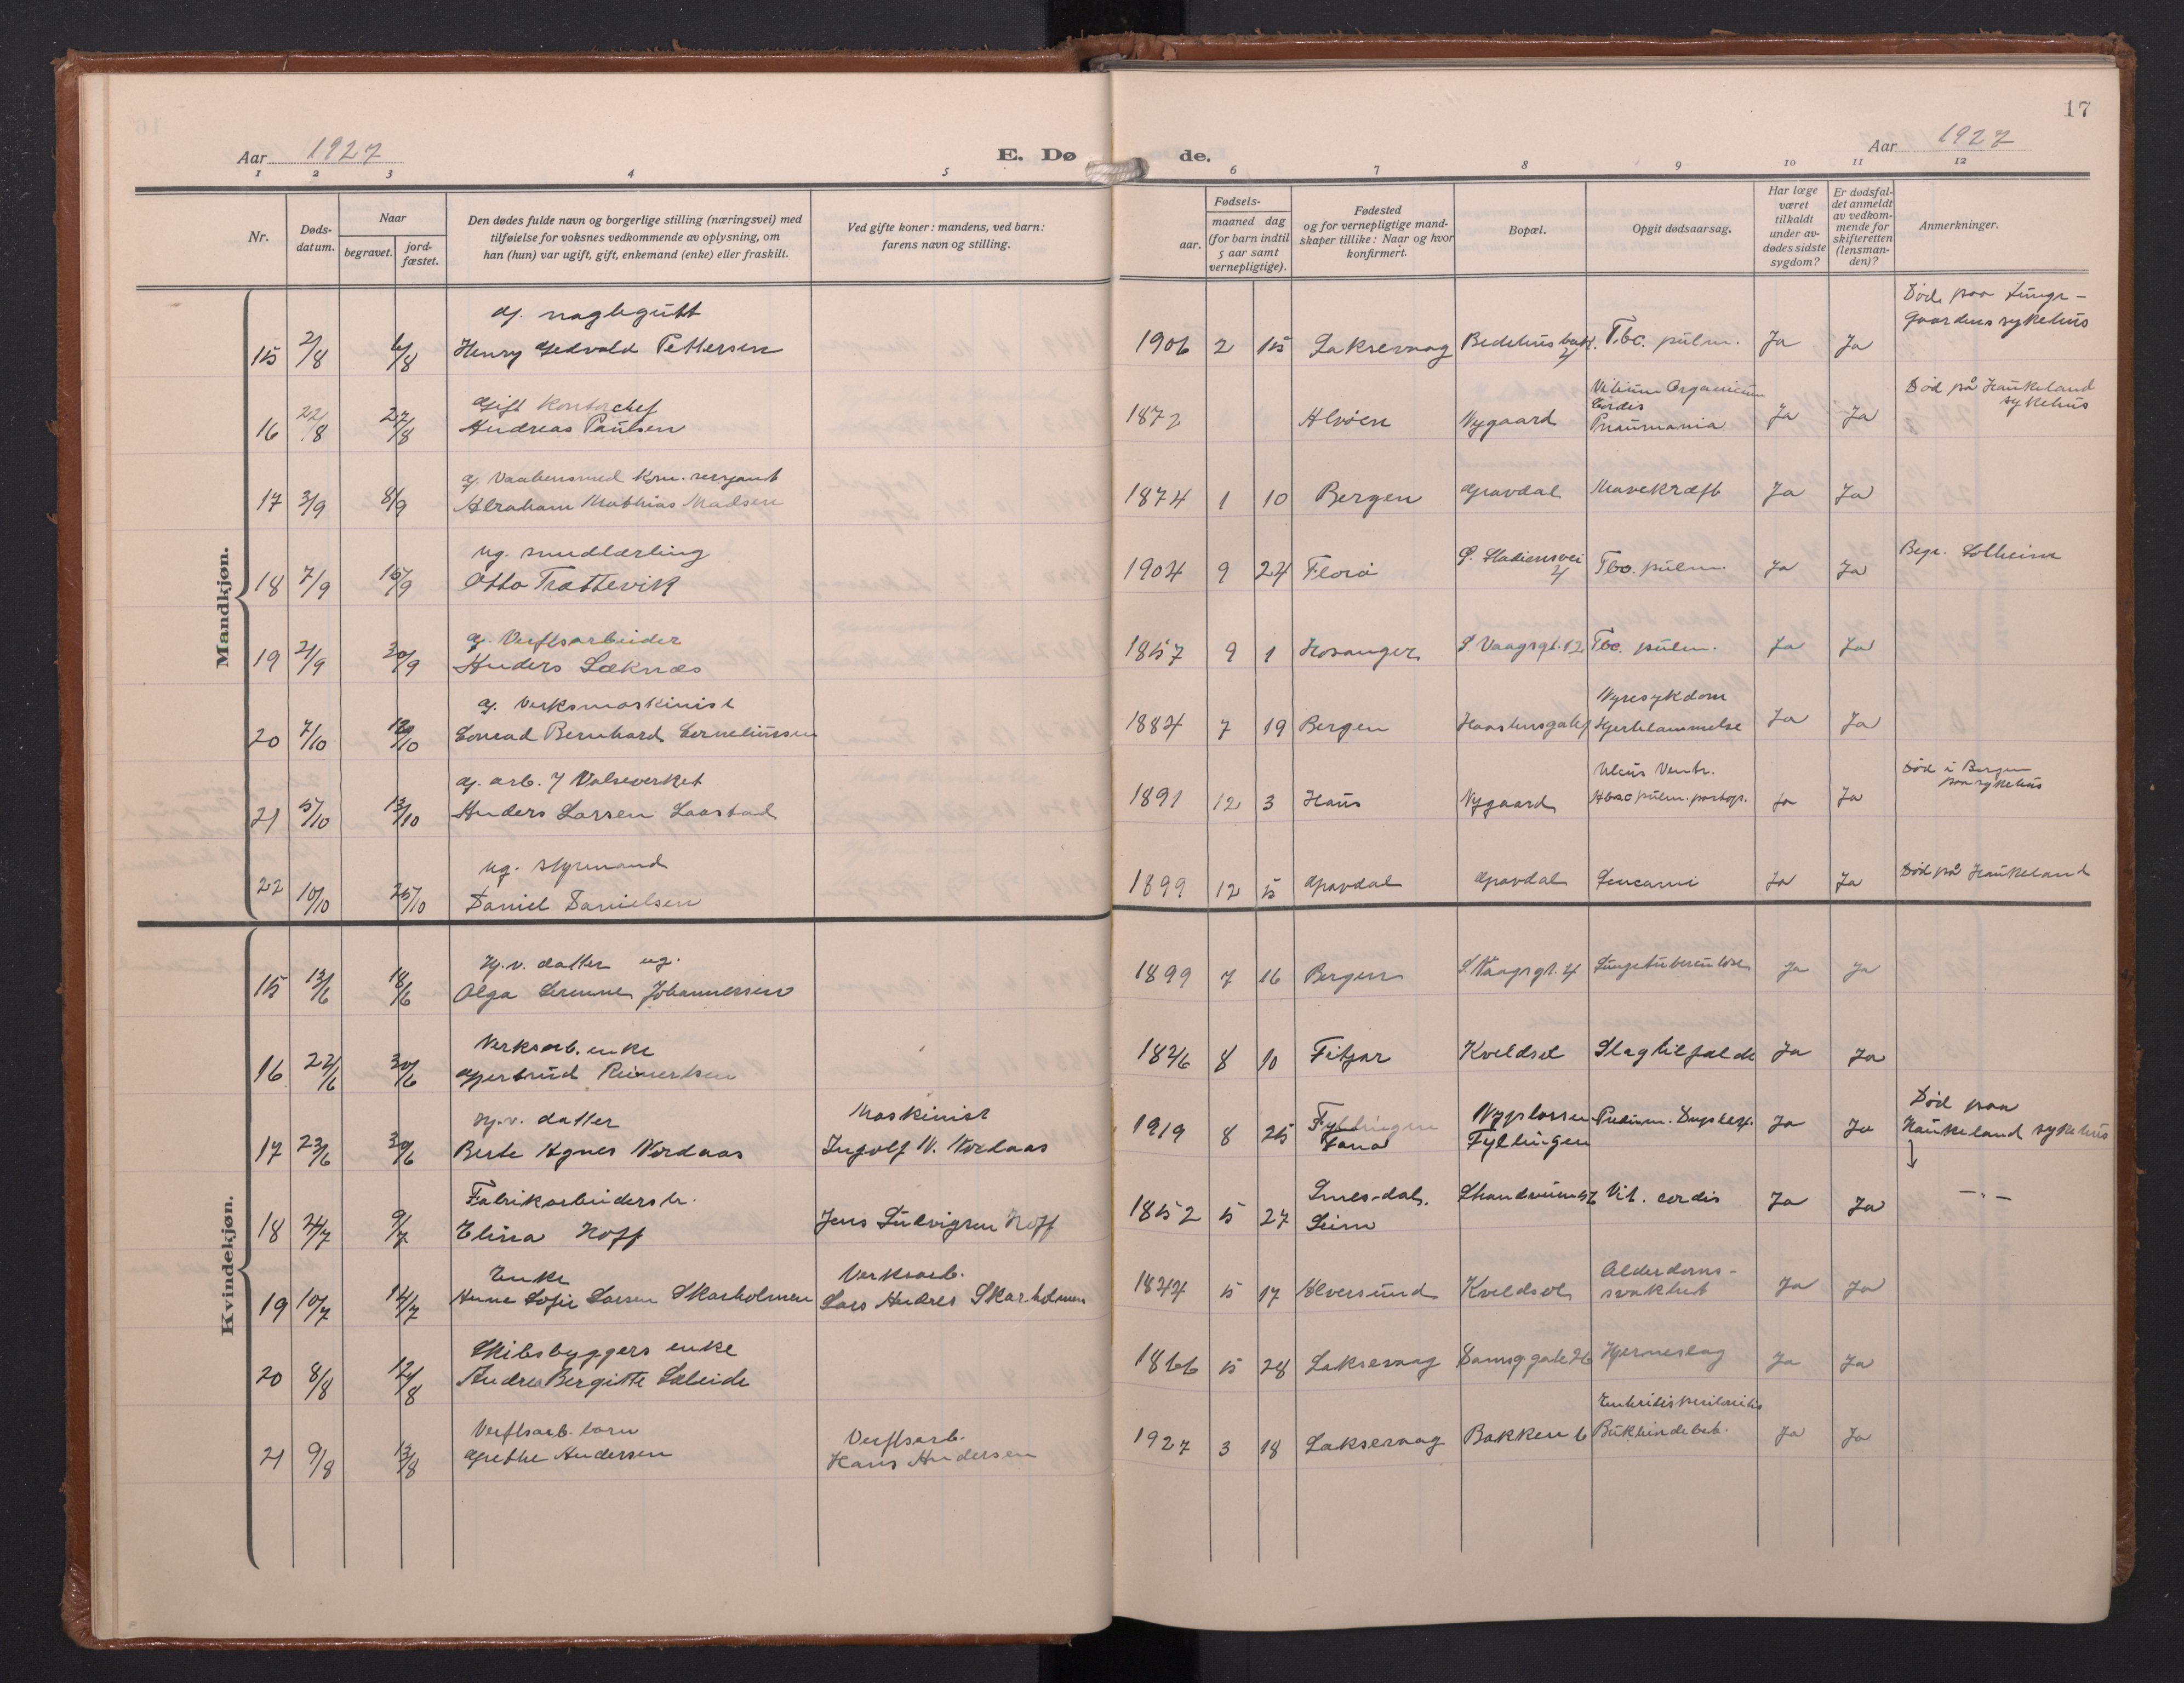 17
Aar 1927
E. Dø de.
Aar 1927
1 2 3 4 5 6 7 8 9 10 11 12
Nr.
Døds-
datum.
Naar
begravet.
jord-
fæstet.
Den dødes fulde navn og borgerlige stilling (næringsvei) med
tilføielse for voksnes vedkommende av oplysning, om
han (hun) var ugift, gift, enkemand (enke) eller fraskilt.
Ved gifte koner: mandens, ved barn:
farens navn og stilling.
Fødsels-
aar.
maaned dag
(for barn indtil
5 aar samt
vernepligtige).
Fødested
og for vernepligtige mand-
skaper tillike: Naar og hvor
konfirmert.
Bopæl.
Opgit dødsaarsag.
Har læge
været
tilkaldt
under av-
dødes sidste
sygdom?
Er dødsfal-
det anmeldt
av vedkom-
mende for
skifteretten
(lensman-
den)?
Anmerkninger.
Mandkjøn.
g. naglegutt
15 2/8 6/8 Henry Gedvald Pettersen 1906 2 15 Laksevaag Tbc. pulm. Ja Ja Død paa Lunge-
gaardens sykehus
Gift Kontorchef
16 22/8 27/8 Andreas Paulsen 1872 Alvøen Nygaard Vitium Organicum
Cordis
Pneumonia Ja Ja Død på Haukeland
sykehus
g. Vaabensmed Kom. sersjant
17 3/9 8/9 Abraham Mathias Madsen 1874 1 10 Bergen Gravdal Mavekræft Ja Ja
ug. smedlærling
18 7/9 15/9 Otto Trættevik 1904 9 24 Florø Tbc. pulm. Ja Ja Begr. Solheim
g. Verftsarbeider
19 21/9 30/9 Anders Læknæs 1857 9 1 Hosanger S. Vaagsgt. 12 Tbc. pulm. Ja Ja
g. Verksmaskinist
20 7/10 Conrad Bernhard Corneliussen 1884 7 19 Bergen Nyresykdom
Hjertelammelse Ja Ja
g. arb. Valseverket
21 5/10 13/10 Anders Larsen Laastad 1891 12 3 Haus Nygaard Ulcus Ventr.
Ja Ja Død i Bergen
paa sykehus
ug. styrmand
22 10/10 25/10 Daniel Danielsen 1899 12 5 Gravdal Gravdal Leucæmi Ja Ja Død på Haukeland
Kvindekjøn.
Hj.v. datter ug.
15 13/6 18/6 Olga Johannessen 1899 7 16 Bergen S. Vaagsgt. 4 Lungetuberculose Ja Ja
Verksarb. enke
16 22/6 30/6 Gjertrud Reinertsen 1826 8 10 Fitjar Kveldsol Slagtilfælde Ja Ja
Hj.v. datter Maskinist
17 23/6 30/6 Berte Agnes Nordaas Ingolf N. Nordaas 1919 8 25 Fyllingen
Fana Fyllingen Ja Ja Død paa
Haukeland sykehus
Fabrikarbeiders h.
18 9/7 Elina Hoff Jens Ludvigsen Hoff 1852 5 27 Seim Vit. cordis Ja Ja —"—
Enke Verksarb.
19 10/7 14/7 Anne Sofie Larsen Skarholmen Lars Andres Skarholmen 1844 5 17 Alversund Kveldsol Alderdoms-
svakhet Ja Ja
Skibsbyggers enke
20 8/8 12/8 Andrea Bergitte Læleide 1866 5 28 Laksevaag Damsg.gate 26 Hjerneslag Ja Ja
Verftsarb. barn Verftsarb.
21 9/8 13/8 Grethe Andersen Hans Andersen 1927 3 18 Laksevaag Bakken 6 Bukhindebet. Ja Ja